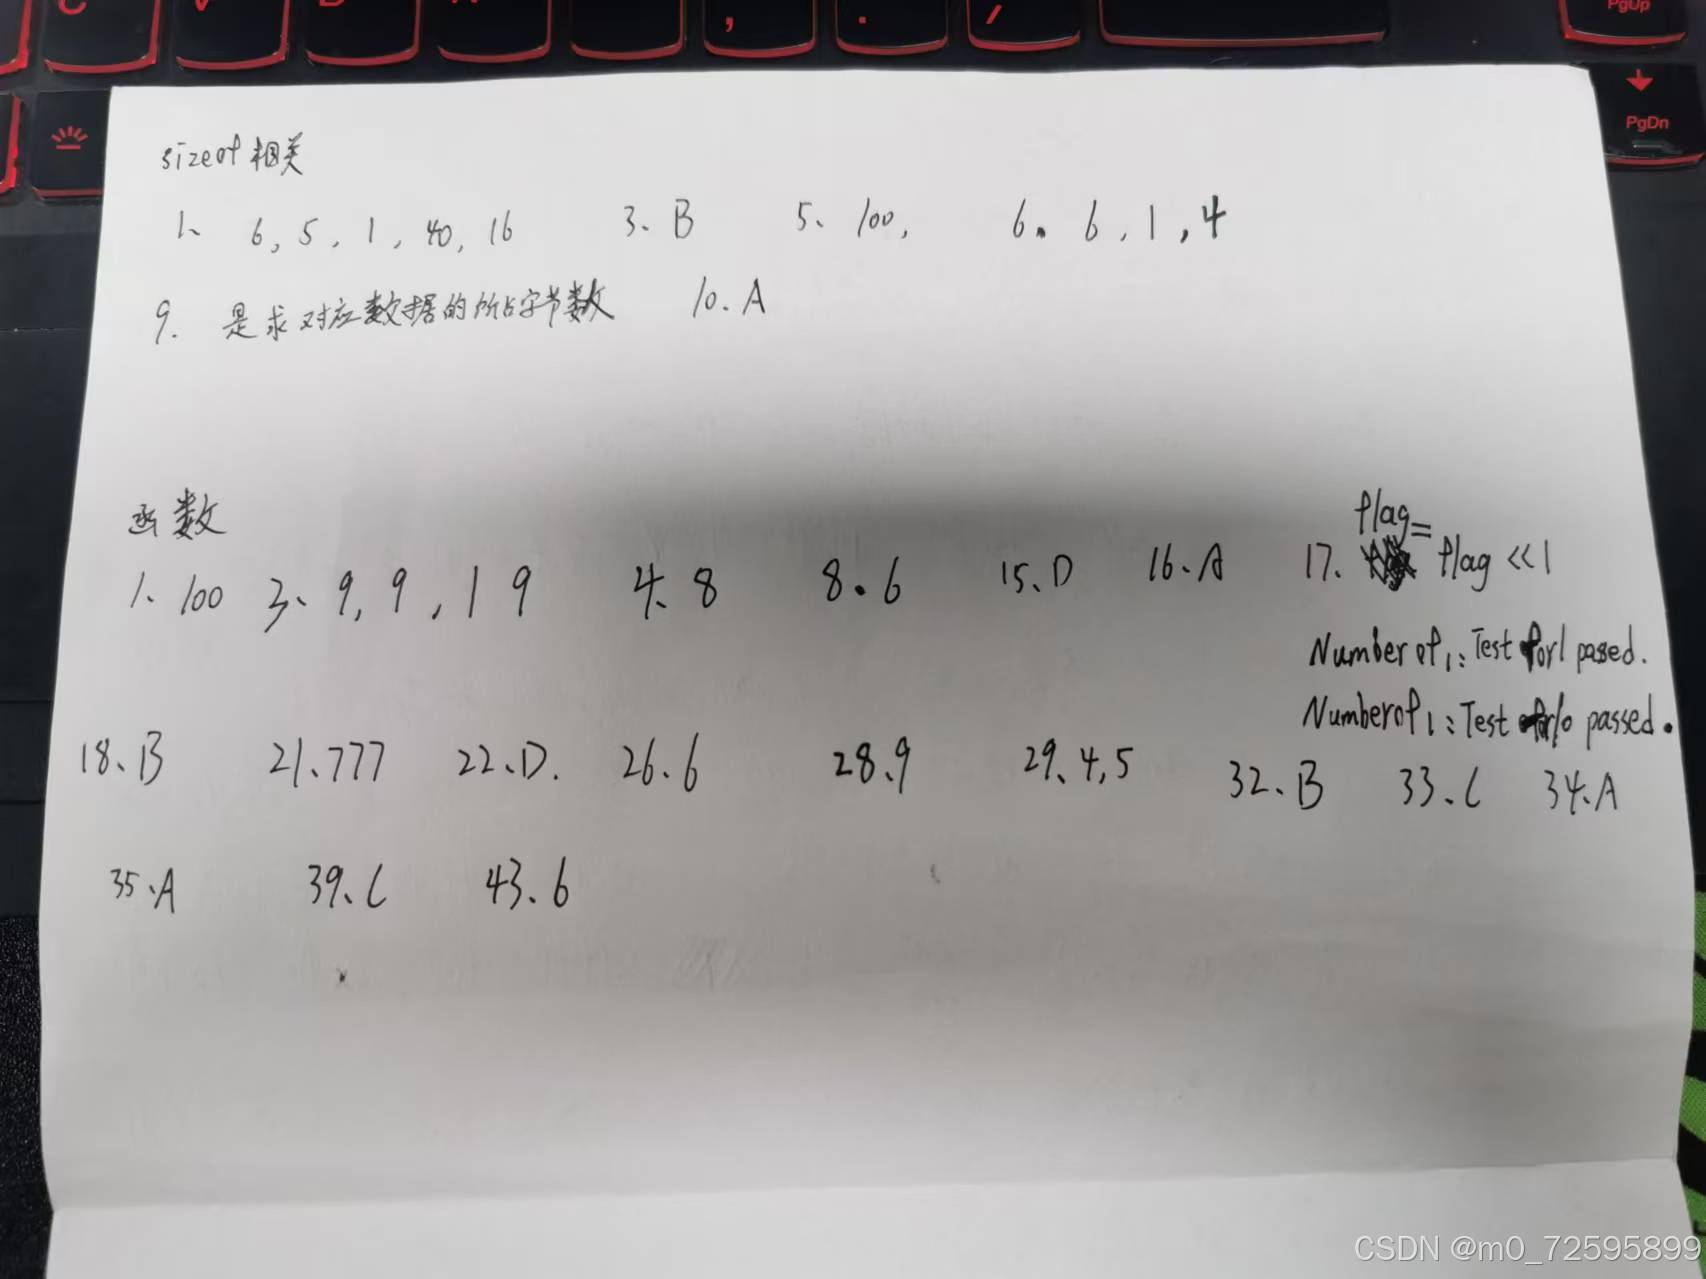 sizeof相关
1、 6, 5, 1, 40, 16 3、B 5、100, 6. 6, 1, 4
9. 是求对应数据的所占字节数 10.A
函数
1、100 3、9, 9, 19 4、8 8.6 15、D 16.A 17、flag= flag <<1
Number of1: Test for1 passed.
Number of1: Test for10 passed.
18、B 21、777 22、D. 26.6 28.9 29、4,5 32、B 33.C 34.A
35、A 39、C 43.6
PgUp
PgDn
CSDN @m0_72595899